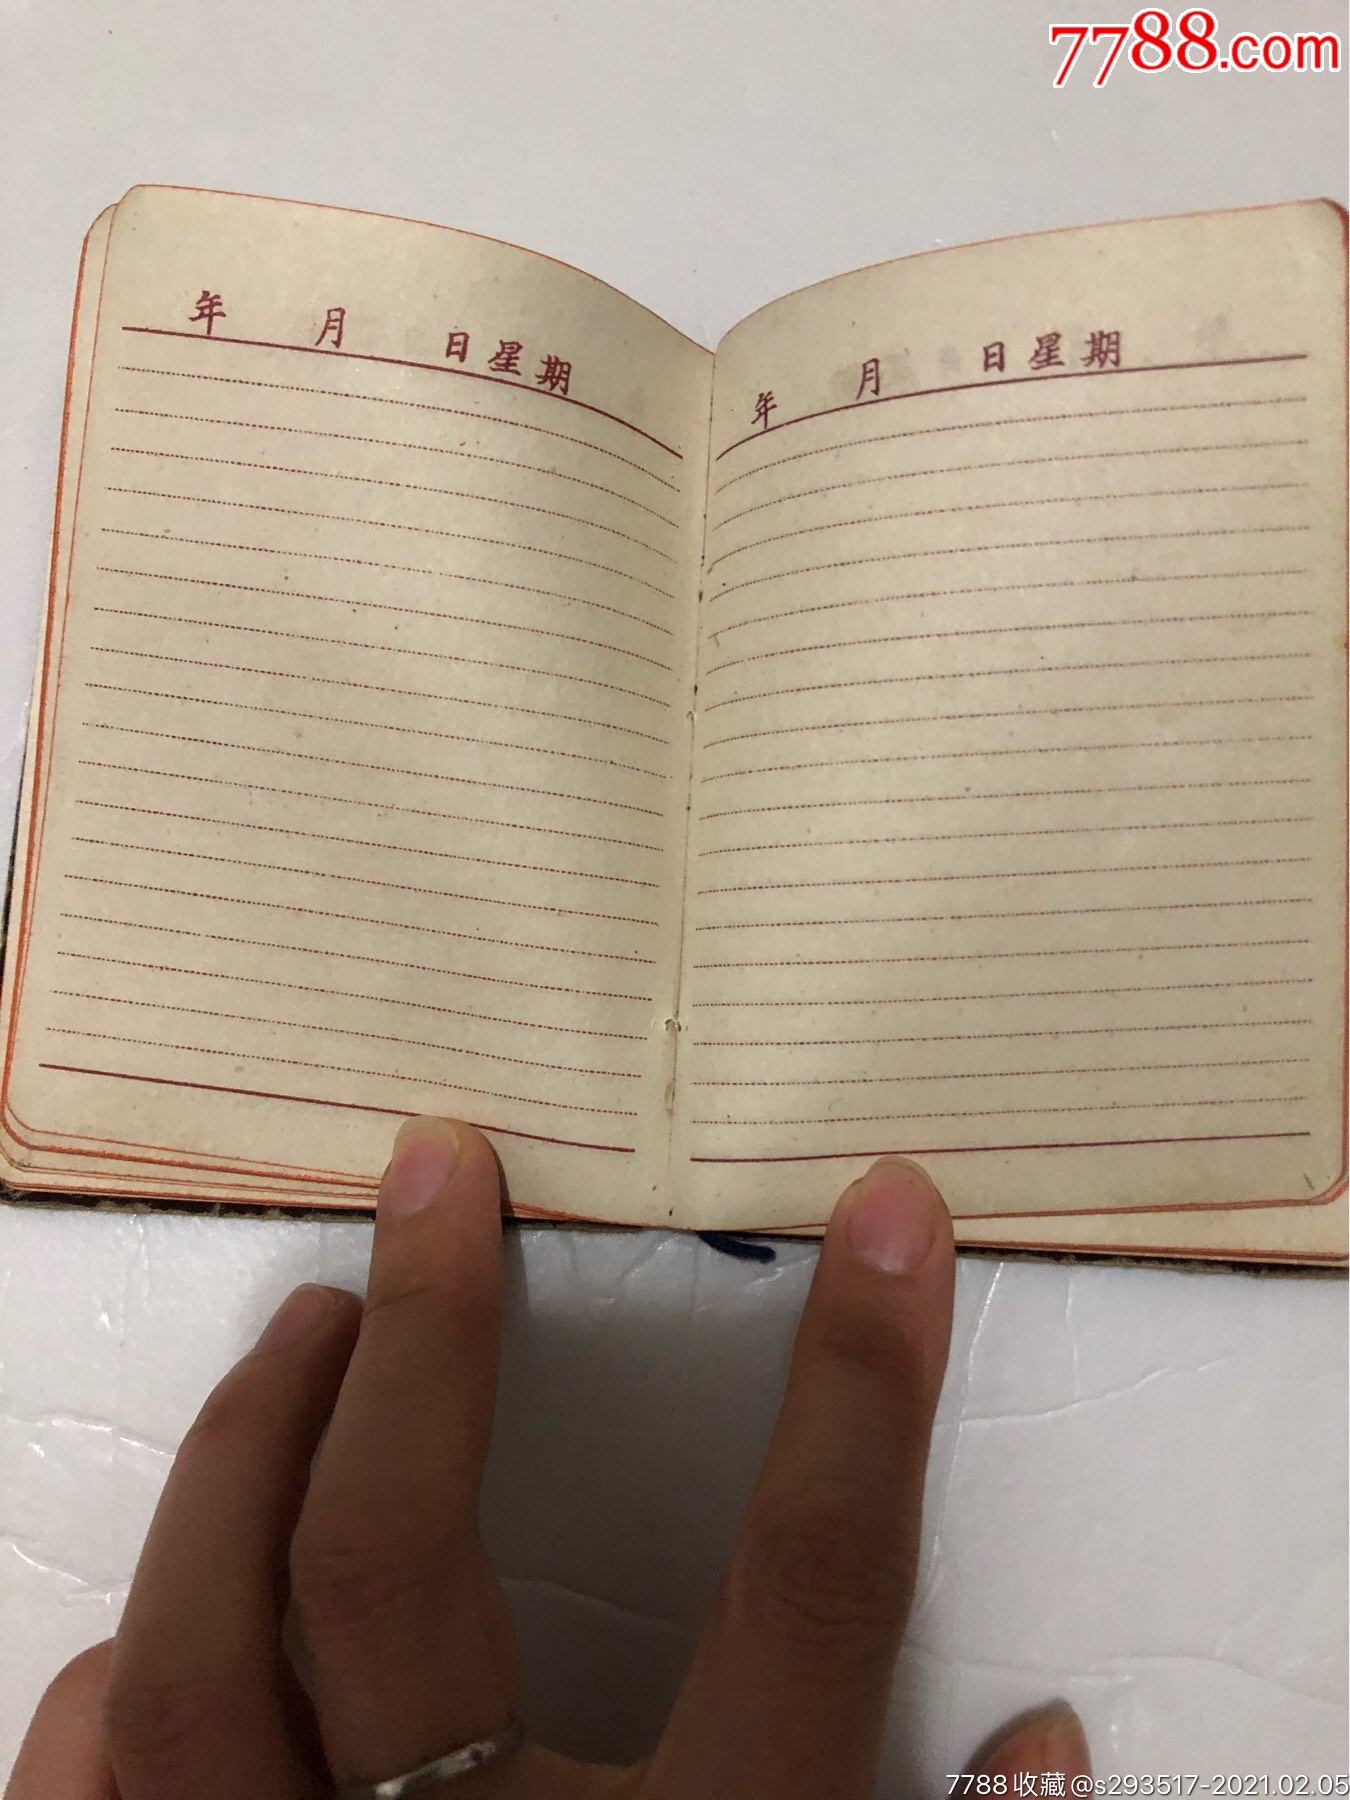 7788.com
年 月 日 星 期
年 月 日 星 期
7788收藏@s293517-2021.02.05